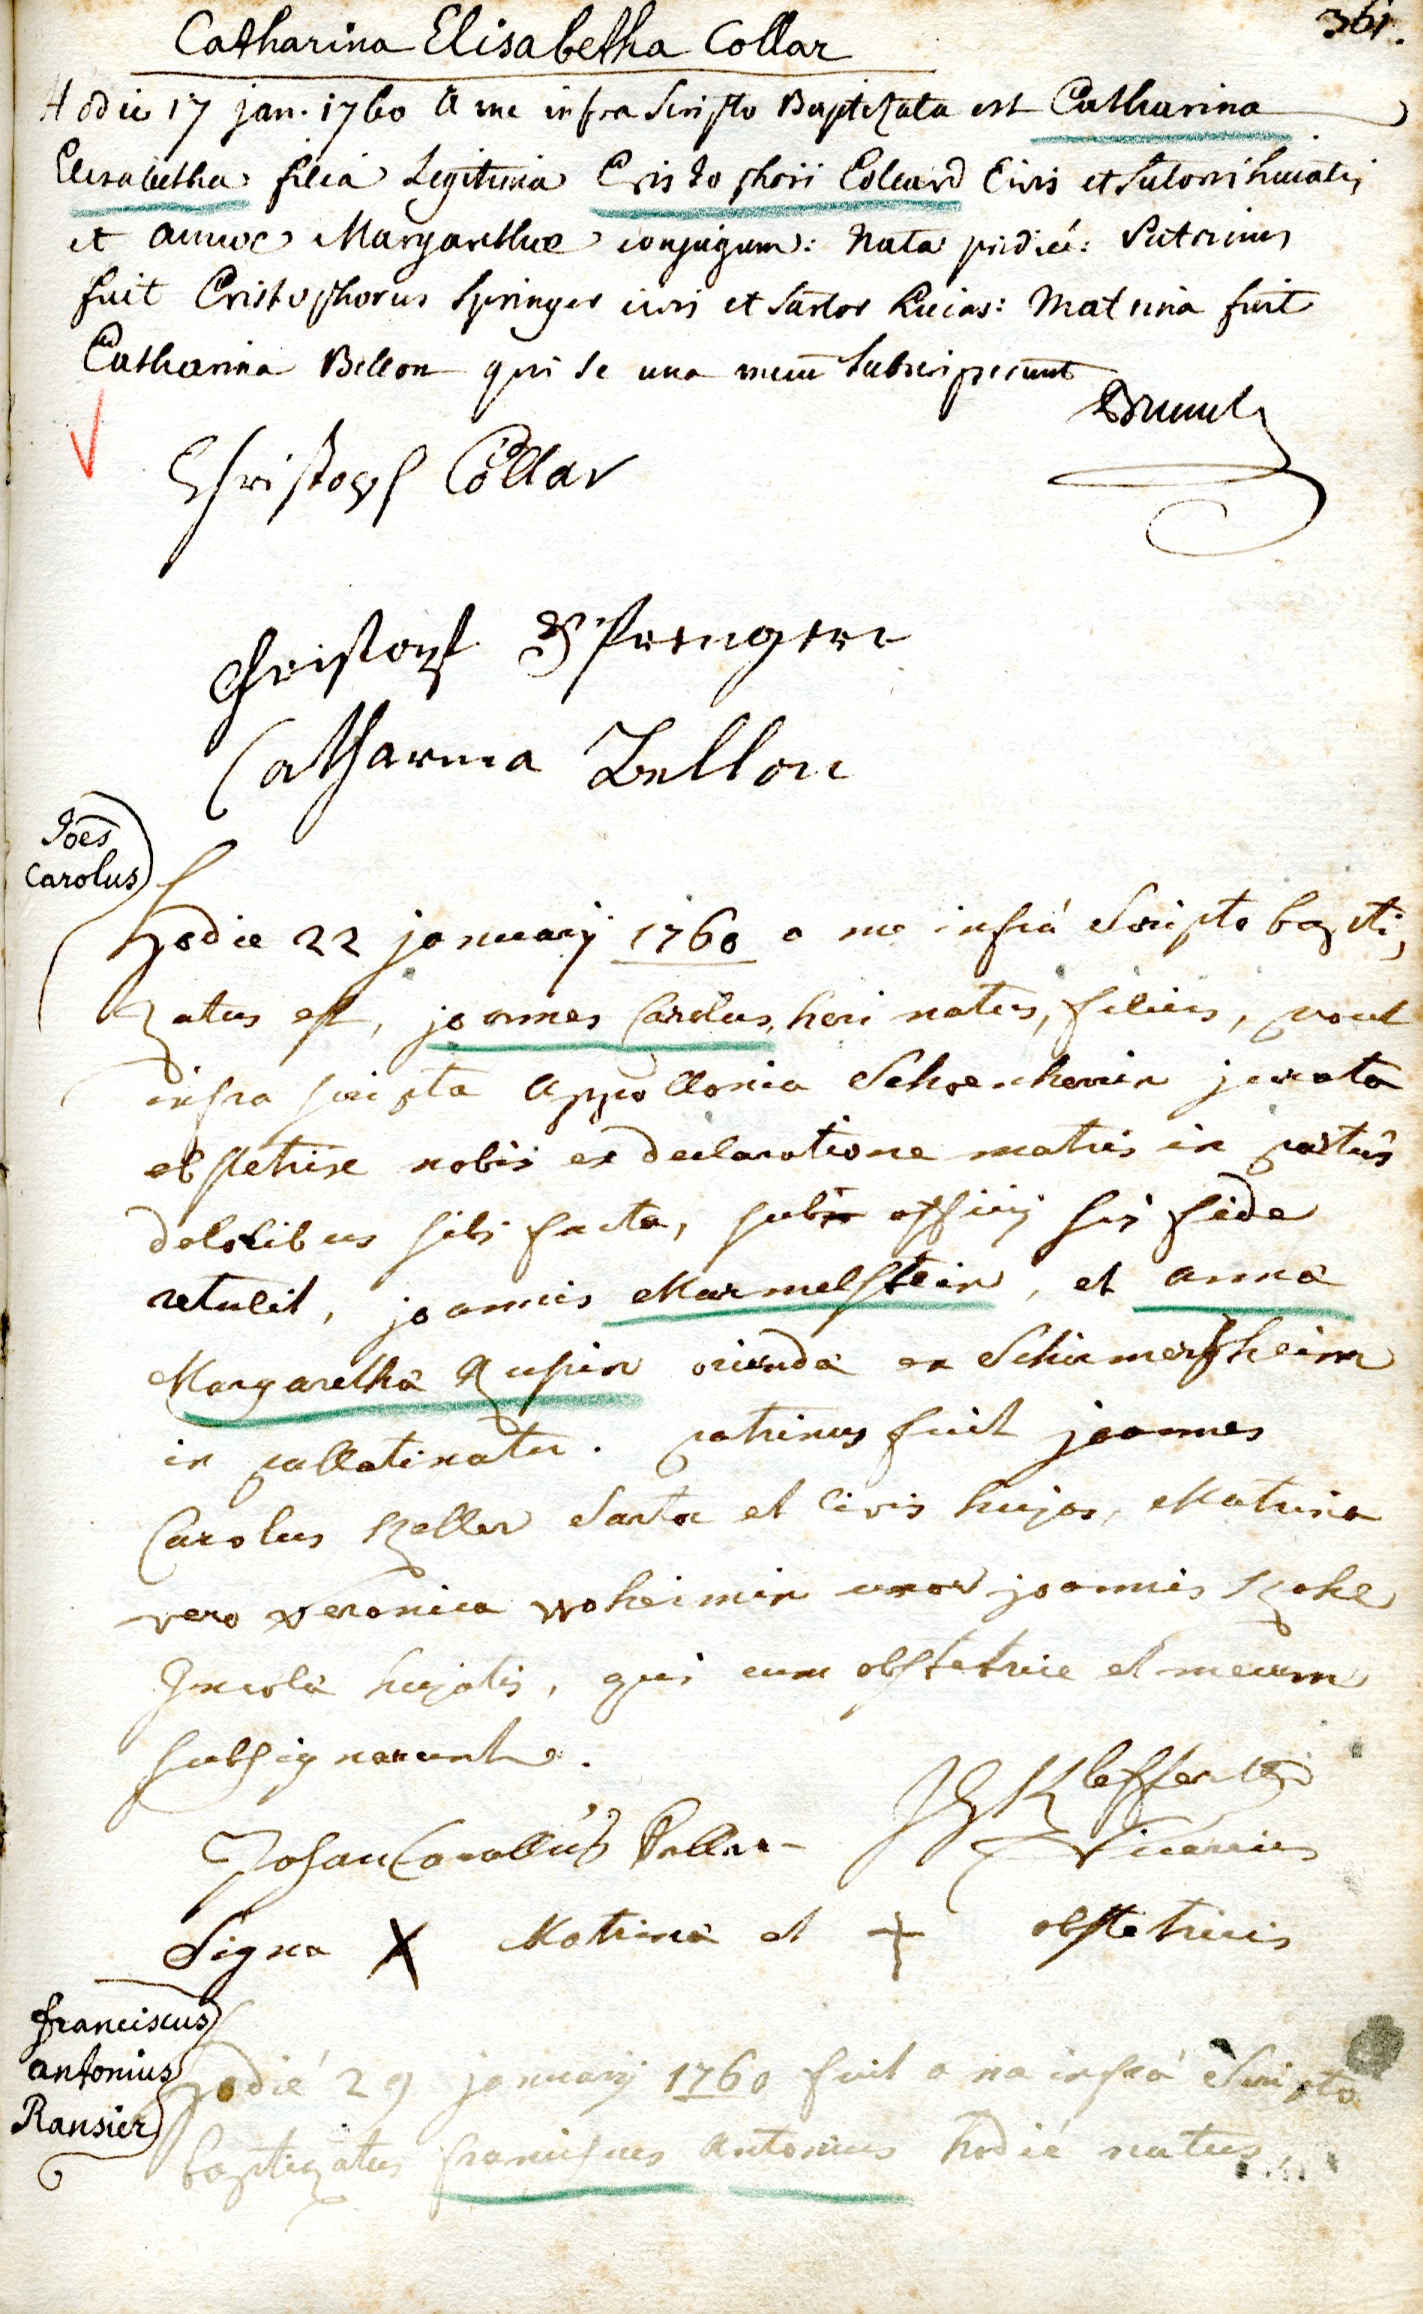 361.
Catharina Elisabetha Collar
Hodie 17 jan. 1760 a me infra Scripto Baptizata est Catharina
Elisabetha filia Legitima Cristophori Coleard Civis et Sutoris huiatis
et annae Margarethae conjugum: Nata pridie: Patrinus
fuit Cristophorus Springer civis et Sartor huias: Matrina fuit
Catharina Bellon qui se una mecum Subscripserunt
Christoph Collar
Christoph Springer
Catharina Bellon
Joës
Carolus
Hodie 22 januarij 1760 a me infrá Scripto bapti
zatus est, joannes Carolus, heri natus, filius, prout
infra scripta Appollonia jurata
obstetrix nobis ex declaratione matris in partus
doloribus sibi facta, sub officij sui fide
retulit, joannis Marmelstein, et anna
Margaretha Rupin oriunda ex Schimersheim
in pallatinatu. patrinus fuit joannes
Carolus Keller Sartor et Civis hujas, Matrina
vero veronica woheimin uxor joannis
Incola hujatis, qui cum obstetrice et mecum
subsignarunt.
Kleffer
Johan Carollus Keller Vicarius
Signa X Matrina et + obstetricis
franciscus
antonius
Ransier
Hodié 29 januarij 1760 fuit a me infrá Scripto
baptizatus franciscus Antonius hodié natus,